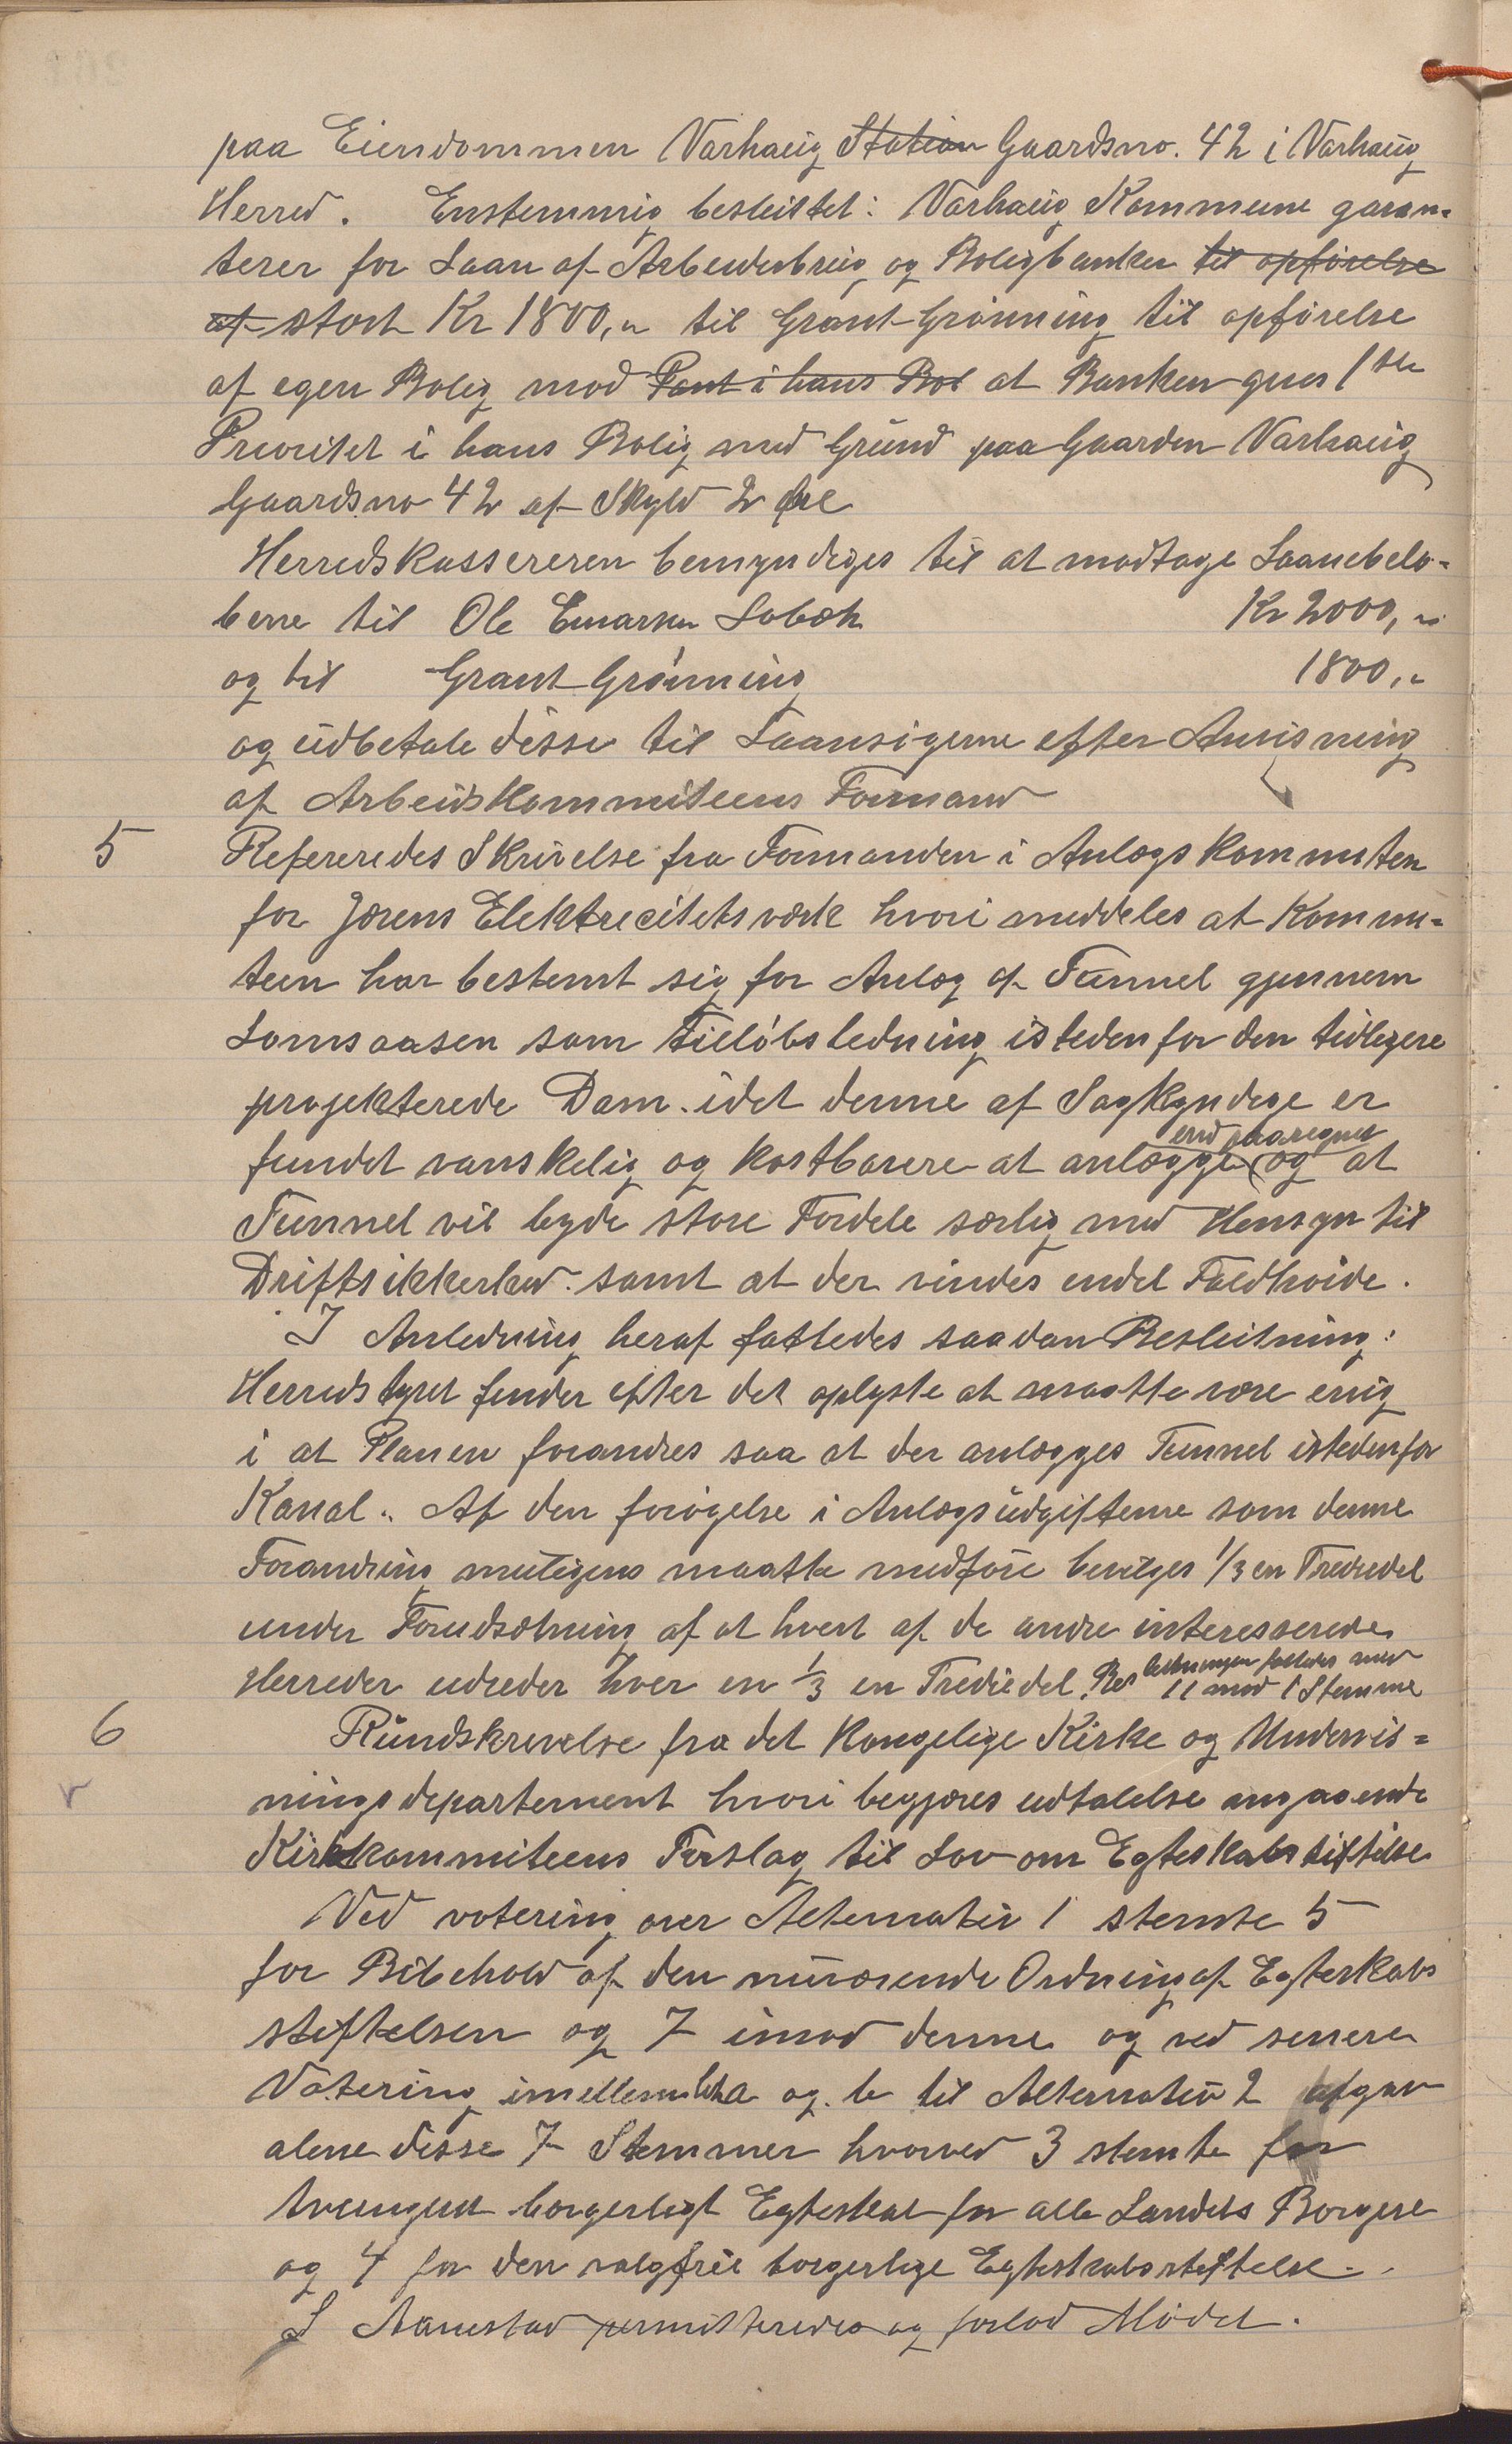 paa Eiendommen Varhaug Station Gaardsno. 42 i Varhaug
Herred. Enstemmig besluttet: Varhaug Kommune garan-
terer for Laan af Arbeiderbrug og Boligbanken til opførelse
af stort Kr 1800,„ til Grant Grønning til opførelse
af egen Bolig mod Pant i hans Bol at Banken gives 1ste
Prioritet i hans Bolig med Grund paa Gaarden Varhaug
Gaardsno 42 af Skyld 2 Øre
Herredskassereren bemyndiges til at modtage Laanebelø-
bene til Ole Lobæk Kr 2000,„
og til Grant Grønning 1800,„
og udbetale disse til Laansøgerne efter Anvisning
af Arbeidskommiteens Formand
5 Refereredes Skrivelse fra Formanden i Anlægskommiten
for Jærens Elektrecitetsværk hvori meddeles at Kommi-
teen har bestemt sig for Anlæg af Tunnel gjennem
Lomsaasen som Tilløbsledning istedenfor den tidligere
projekterede Dam. idet denne af Sagkyndige er
end paaregnet
fundet vanskelig og kostbarere at anlægge og at
Tunnel vil byde store Fordele særlig med Hensyn til
Driftsikkerhed. samt at der vindes endel Faldhøide.
I Anledning heraf fattedes saadan Beslutning:
Herredstyret finder efter det oplyste at maatte være enig
i at Planen forandres saa at der anlægges Tunnel istedenfor
Kanal. Af den forøgelse i Anlægsudgifterne som denne
Forandring muligens maatte medføre bevilges 1/3 en Trediedel
under Forudsætning af at hvert af de andre interesserede
Herreder udreder hver en 1/3 en Trediedel. Beslutningen fattedes med
11 mod 1 Stemme
6 Rundskrivelse fra det kongelige Kirke og Undervis-
v ningsdepartement hvori begjæres udtalelse angaaende
Kirkekommiteens Forslag til Lov om Egteskabstiftelse
Ved votering over Alternativ 1 stemte 5
for Bibehold af den nuværende Ordning af Egteskabs
stiftelsen og 7 imod denne og ved senere
Votering imellem Lit a og b til Alternativ 2 afgav
alene disse 7 Stemmer hvorved 3 stemte for
tvungent borgerligt Egteskab for alle Landets Borgere
og 4 for den valgfrie borgerlige Egteskabsstiftelse.
S Aanestad permitteredes og forlod Mødet.